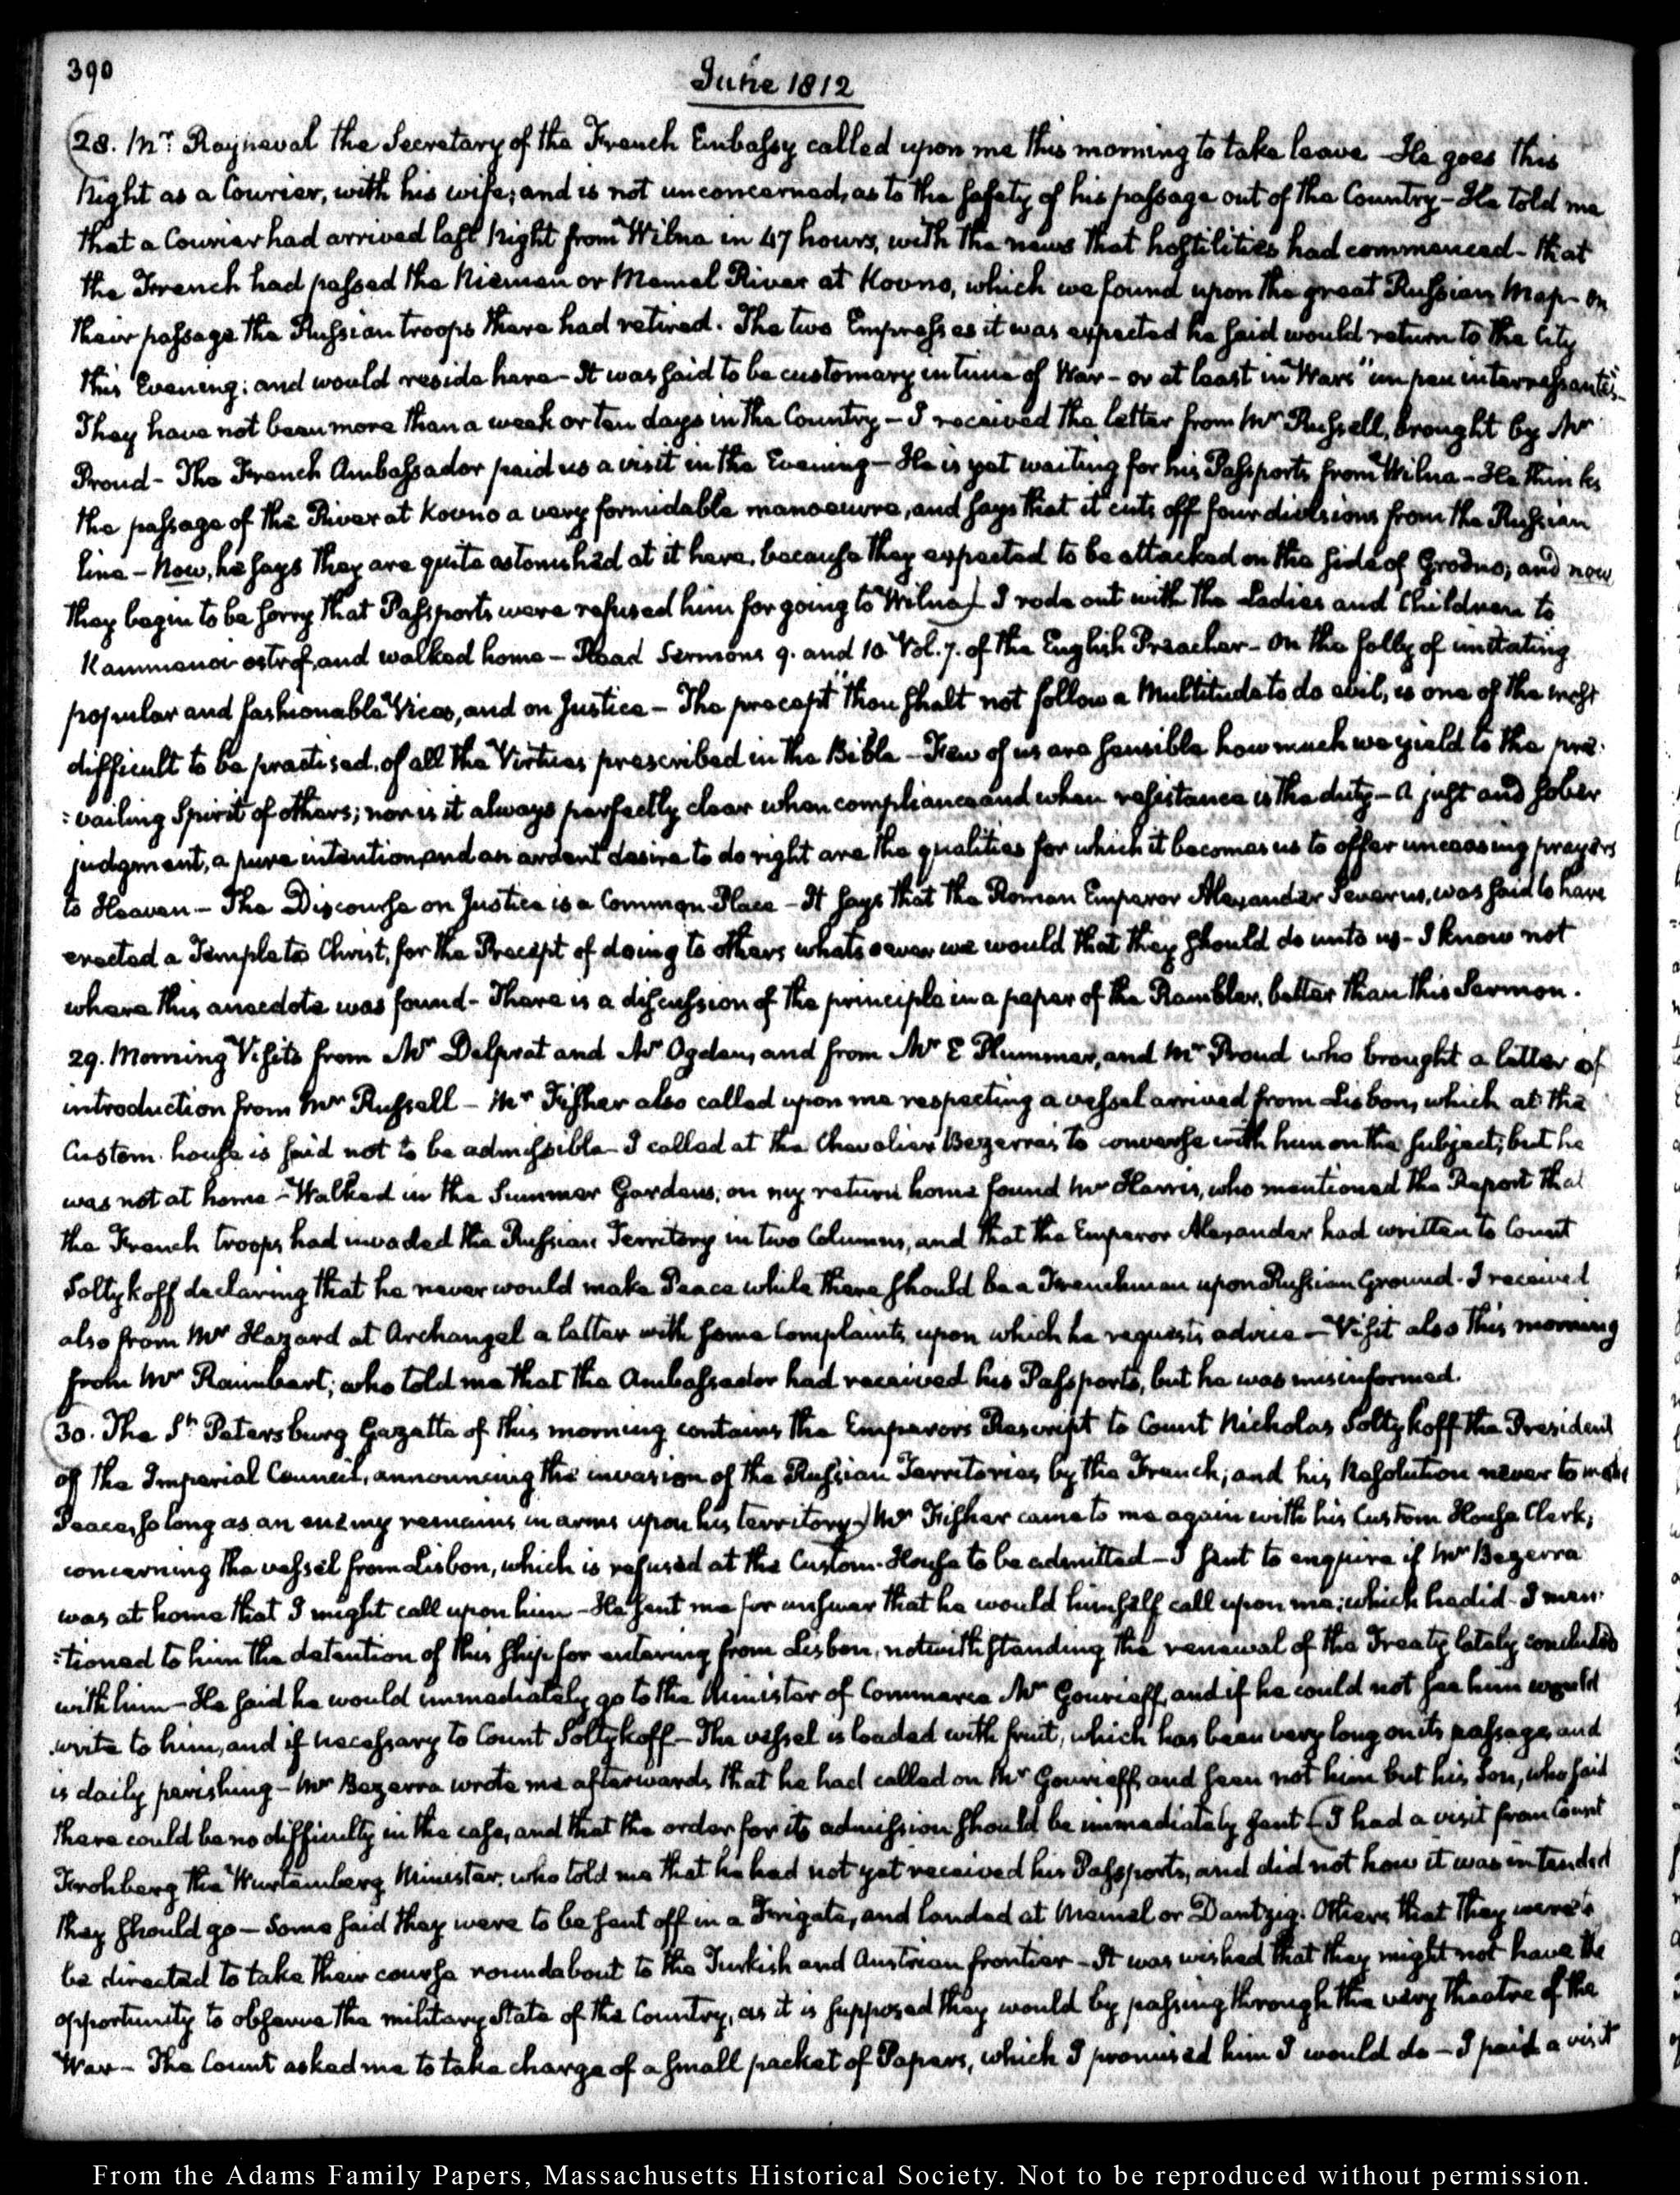 390
June 1812
28. Mr. Rayneval the Secretary of the French Embassy called upon me this morning to take leave - He goes this
Night as a Courier, with his wife; and is not unconcerned, as to the safety of his passage out of the Country - He told me
that a Courier had arrived last Night from Wilna in 47 hours, with the news that hostilities had commenced - that
the French had passed the Niemen or Memel River at Kovno, which we found upon the great Russian Map - On
their passage the Russian troops there had retired. The two Empresses it was expected he said would return to the City
this Evening; and would reside here - It was said to be customary in time of War - or at least in Wars "un peu interressantes" -
They have not been more than a week or ten days in the Country - I received the letter from Mr Russell, brought by Mr
Proud - The French Ambassador paid us a visit in the Evening - He is yet waiting for his Passports from Wilna - He thinks
the passage of the River at Kovno a very formidable manoeuvre, and says that it cuts off four divisions from the Russian
line - Now, he says they are quite astonished at it here, because they expected to be attacked on the side of Grodno; and now
they begin to be sorry that Passports were refused him for going to Wilna) - I rode out with the Ladies and Children to
Kammenoi-ostrof, and walked home - Read Sermons 9. and 10 Vol. 7. of the English Preacher - On the folly of imitating
popular and fashionable Vices, and on Justice - The precept "thou shalt not follow a Multitude to do evil, is one of the most
difficult to be practised, of all the Virtues prescribed in the Bible - Few of us are sensible how much we yield to the pre-
:vailing Spirit of others; nor is it always perfectly clear when compliance and when resistance is the duty - A just and sober
judgment, a pure intention, and an ardent desire to do right are the qualities for which it becomes us to offer unceasing prayers
to Heaven - The Discourse on Justice is a Common Place - It says that the Roman Emperor Alexander Severus, was said to have
erected a Temple to Christ, for the Precept of doing to others whatsoever we would that they should do unto us - I know not
where this anecdote was found - There is a discussion of the principle in a paper of the Rambler, better than this Sermon.
29. Morning Visits from Mr Delprat and Mr Ogden, and from Mr E Plummer, and Mr Proud who brought a letter of
introduction from Mr Russell - Mr Fisher also called upon me respecting a vessel arrived from Lisbon, which at the
Custom-house is said not to be admissible - I called at the Chevalier Bezerra's to converse with him on the subject; but he
was not at home - Walked in the Summer Gardens; on my return home found Mr Harris, who mentioned the Report that
the French troops had invaded the Russian Territory in two Columns, and that the Emperor Alexander had written to Count
Soltykoff declaring that he never would make Peace while there should be a Frenchman upon Russian Ground. I received
also from Mr Hazard at Archangel a letter with some Complaints, upon which he requests advice - Visit also this morning
from Mr Raimbert; who told me that the Ambassador had received his Passports, but he was misinformed.
30. The St. Petersburg Gazette of this morning contains the Emperors Rescript to Count Nicholas Soltykoff the President
of the Imperial Council, announcing the invasion of the Russian Territories by the French; and his Resolution never to make
Peace, so long as an enemy remains in arms upon his territory.) Mr Fisher came to me again with his Custom House Clerk,
concerning the vessel from Lisbon, which is refused at the Custom-House to be admitted - I sent to enquire if Mr Bezerra
was at home that I might call upon him - He sent me for answer that he would himself call upon me; which he did - I men-
:tioned to him the detention of this ship for entering from Lisbon, notwithstanding the renewal of the Treaty lately concluded
with him - He said he would immediately go to the Minister of Commerce Mr Gourieff, and if he could not see him would
write to him, and if necessary to Count Soltykoff - The vessel is loaded with fruit, which has been very long on its passage, and
is daily perishing - Mr Bezerra wrote me afterwards that he had called on Mr Gourieff, and seen not him but his Son, who said
there could be no difficulty in the case, and that the order for its admission should be immediately sent - (I had a visit from Count
Frohberg the Wurtemberg Minister, who told me that he had not yet received his Passports, and did not how it was intended
they should go - Some said they were to be sent off in a Frigate, and landed at Memel or Dantzig. Others that they were to
be directed to take their course roundabout to the Turkish and Austrian frontier - It was wished that they might not have the
opportunity to observe the military State of the Country, as it is supposed they would by passing through the very theatre of the
War - The Count asked me to take charge of a small packet of Papers, which I promised him I would do - I paid a visit
From the Adams Family Papers, Massachusetts Historical Society. Not to be reproduced without permission.